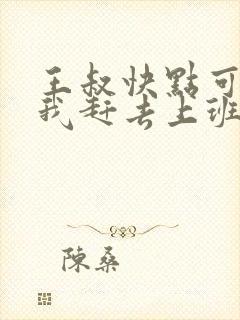 王叔快點可
我赶去上班
陳桑